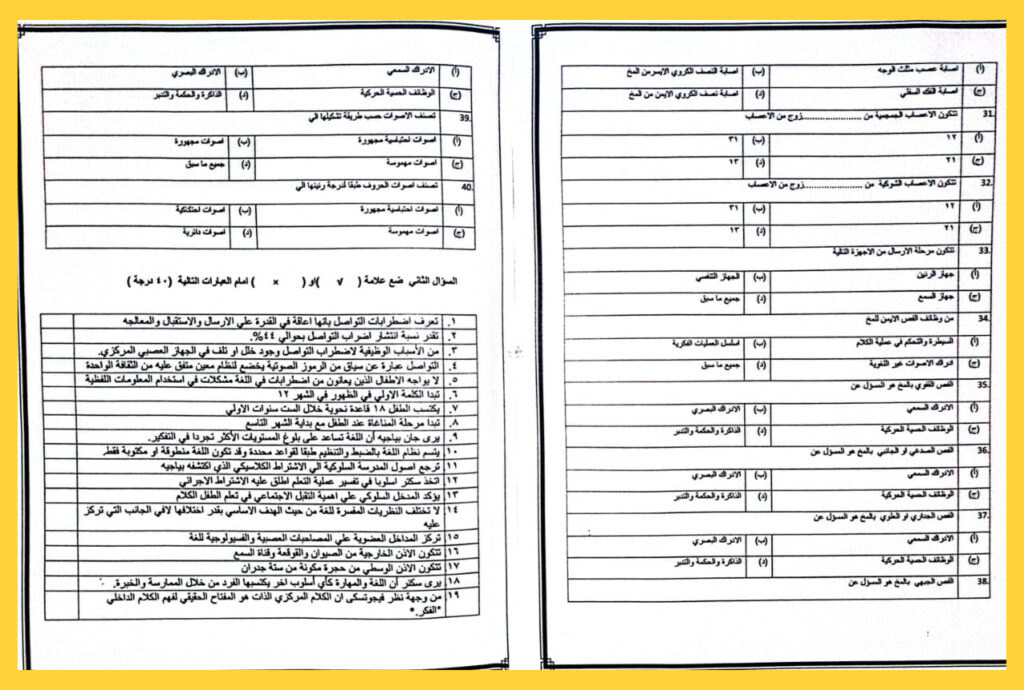 (أ) اصابة عصب مثلث الوجه (ب) اصابة النصف الكروي الايسر من المخ
(ج) اصابة الفك السفلي (د) اصابة نصف الكروي الايمن من المخ
31. تتكون الاعصاب الجمجمية من ......................زوج من الاعصاب
(أ) ١٢ (ب) ٣١
(ج) ٢١ (د) ١٣
32. تتكون الاعصاب الشوكية من ......................زوج من الاعصاب
(أ) ١٢ (ب) ٣١
(ج) ٢١ (د) ١٣
33. تتكون مرحلة الارسال من الاجهزة التالية
(أ) جهاز الرنين (ب) الجهاز التنفسي
(ج) جهاز السمع (د) جميع ما سبق
34. من وظائف الفص الايمن للمخ
(أ) السيطرة والتحكم في عملية الكلام (ب) اسلسل العمليات الفكرية
(ج) ادراك الاصوات غير اللغوية (د) جميع ما سبق
35. الفص القفوي بالمخ هو المسؤل عن
(أ) الادراك السمعي (ب) الادراك البصري
(ج) الوظائف الحسية الحركية (د) الذاكرة والحكمة والتدبر
36. الفص الصدغي او الجانبي بالمخ هو المسؤل عن
(أ) الادراك السمعي (ب) الادراك البصري
(ج) الوظائف الحسية الحركية (د) الذاكرة والحكمة والتدبر
37. الفص الجداري او العلوي بالمخ هو المسؤل عن
(أ) الادراك السمعي (ب) الادراك البصري
(ج) الوظائف الحسية الحركية (د) الذاكرة والحكمة والتدبر
38. الفص الجبهي بالمخ هو المسؤل عن
(أ) الادراك السمعي (ب) الادراك البصري
(ج) الوظائف الحسية الحركية (د) الذاكرة والحكمة والتدبر
39. تصنف الاصوات حسب طريقة تشكيلها الي
(أ) اصوات احتباسية مجهورة (ب) اصوات مجهورة
(ج) اصوات مهموسة (د) جميع ما سبق
40. تصنف اصوات الحروف طبقا لدرجة رنينها الي
(أ) اصوات احتباسية مجهورة (ب) اصوات احتكاكية
(ج) اصوات مهموسة (د) اصوات دائرية
السؤال الثاني ضع علامة ( √ )او ( × ) امام العبارات التالية (٤٠ درجة )
١. تعرف اضطرابات التواصل بانها اعاقة في القدرة علي الارسال والاستقبال والمعالجه
٢. تقدر نسبة انتشار اضراب التواصل بحوالي ٤٤%.
٣. من الأسباب الوظيفية لاضطراب التواصل وجود خلل او تلف في الجهاز العصبي المركزي.
٤. التواصل عبارة عن سياق من الرموز الصوتية يخضع لنظام معين متفق عليه من الثقافة الواحدة
٥. لا يواجه الاطفال الذين يعانون من اضطرابات في اللغة مشكلات في استخدام المعلومات اللفظية
٦. تبدا الكلمة الاولي في الظهور في الشهر ١٢
٧. يكتسب الطفل ١٨ قاعدة نحوية خلال الست سنوات الاولي
٨. تبدا مرحلة المناغاة عند الطفل مع بداية الشهر التاسع
٩. يرى جان بياجيه أن اللغة تساعد على بلوغ المستويات الأكثر تجردا في التفكير.
١٠ يتسم نظام اللغة بالضبط والتنظيم طبقا لقواعد محددة وقد تكون اللغة منطوقة او مكتوبة فقط
١١ ترجع اصول المدرسة السلوكية الي الاشتراط الكلاسيكي الذي اكتشفه بياجيه
١٢ اتخذ سكنر اسلوبا في تفسير عملية التعلم اطلق عليه الاشتراط الاجرائي
١٣ يؤكد المدخل السلوكي علي اهمية التقبل الاجتماعي في تعلم الطفل الكلام
١٤ لا تختلف النظريات المفسرة للغة من حيث الهدف الاساسي بقدر اختلافها لافي الجانب التي تركز
عليه
١٥ تركز المداخل العضوية علي المصاحبات العصبية والفسيولوجية للغة
١٦ تتكون الاذن الخارجية من الصيوان والقوقعة وقناة السمع
١٧ تتكون الاذن الوسطي من حجرة مكونة من ستة جدران
١٨ يرى سكنر أن اللغة والمهارة كأي أسلوب اخر يكتسبها الفرد من خلال الممارسة والخبرة.
١٩ من وجهة نظر فيجوتسكى ان الكلام المركزي الذات هو المفتاح الحقيقي لفهم الكلام الداخلي
"الفكر."